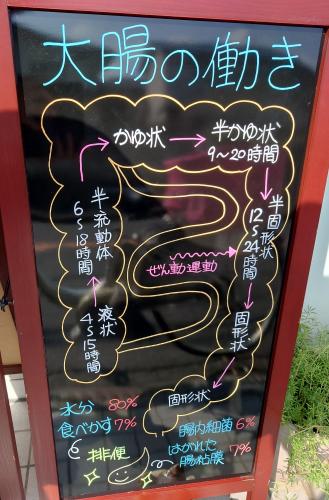 大腸の働き
かゆ状
半かゆ状
9〜20時間
半流動体
6〜18時間
半固形状
12〜24時間
ぜん動運動
液状
4〜15時間
固形状
固形状
水分 80%
食べかす 7%
排便
腸内細菌 6%
はがれた
腸粘膜 7%